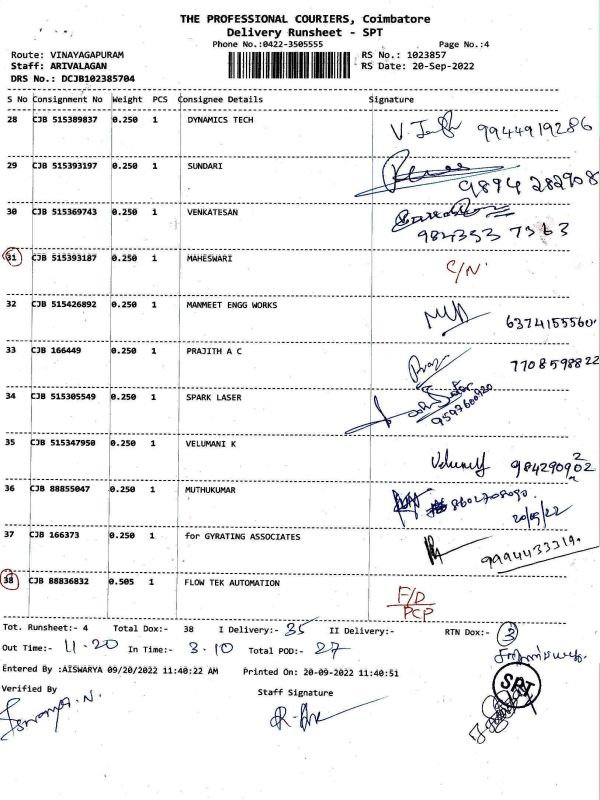 THE PROFESSIONAL COURIERS, Coimbatore
Delivery Runsheet - SPT
Phone No.:0422-3505555 Page No.:4
Route: VINAYAGAPURAM RS No.: 1023857
Staff: ARIVALAGAN RS Date: 20-Sep-2022
DRS No.: DCJB102385704
S No Consignment No Weight PCS Consignee Details Signature
28 CJB 515389837 0.250 1 DYNAMICS TECH 9944919286
29 CJB 515393197 0.250 1 SUNDARI 9894 282908
30 CJB 515369743 0.250 1 VENKATESAN
31 CJB 515393187 0.250 1 MAHESWARI C/N
32 CJB 515426892 0.250 1 MANMEET ENGG WORKS 6374155560
33 CJB 166449 0.250 1 PRAJITH A C 7708598822
34 CJB 515305549 0.250 1 SPARK LASER 9597600920
35 CJB 515347950 0.250 1 VELUMANI K
36 CJB 88855047 0.250 1 MUTHUKUMAR
20/09/22
37 CJB 166373 0.250 1 for GYRATING ASSOCIATES 9994433319.
38 CJB 88836832 0.505 1 FLOW TEK AUTOMATION F/D
PCP
Tot. Runsheet:- 4 Total Dox:- 38 I Delivery:- 35 II Delivery:- RTN Dox:- 3
Out Time:- 11.20 In Time:- 3.10 Total POD:- 27
Entered By :AISWARYA 09/20/2022 11:40:22 AM Printed On: 20-09-2022 11:40:51
Verified By Staff Signature
SPT